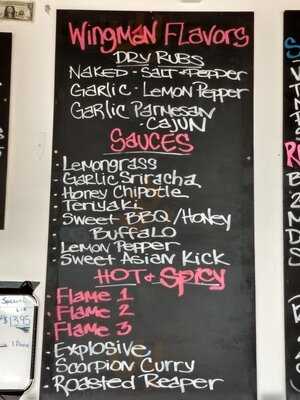 Wingman Flavors
DRY RUBS
Naked - Salt & Pepper
Garlic - Lemon Pepper
Garlic Parmesan
- Cajun
SAUCES
- Lemongrass
- Garlic Sriracha
- Honey Chipotle
Teriyaki
- Sweet BBQ/Honey
Buffalo
- Lemon Pepper
- Sweet Asian Kick
HOT & Spicy
- Flame 1
- Flame 2
- Flame 3
- Explosive
- Scorpion Curry
- Roasted Reaper
$13.95